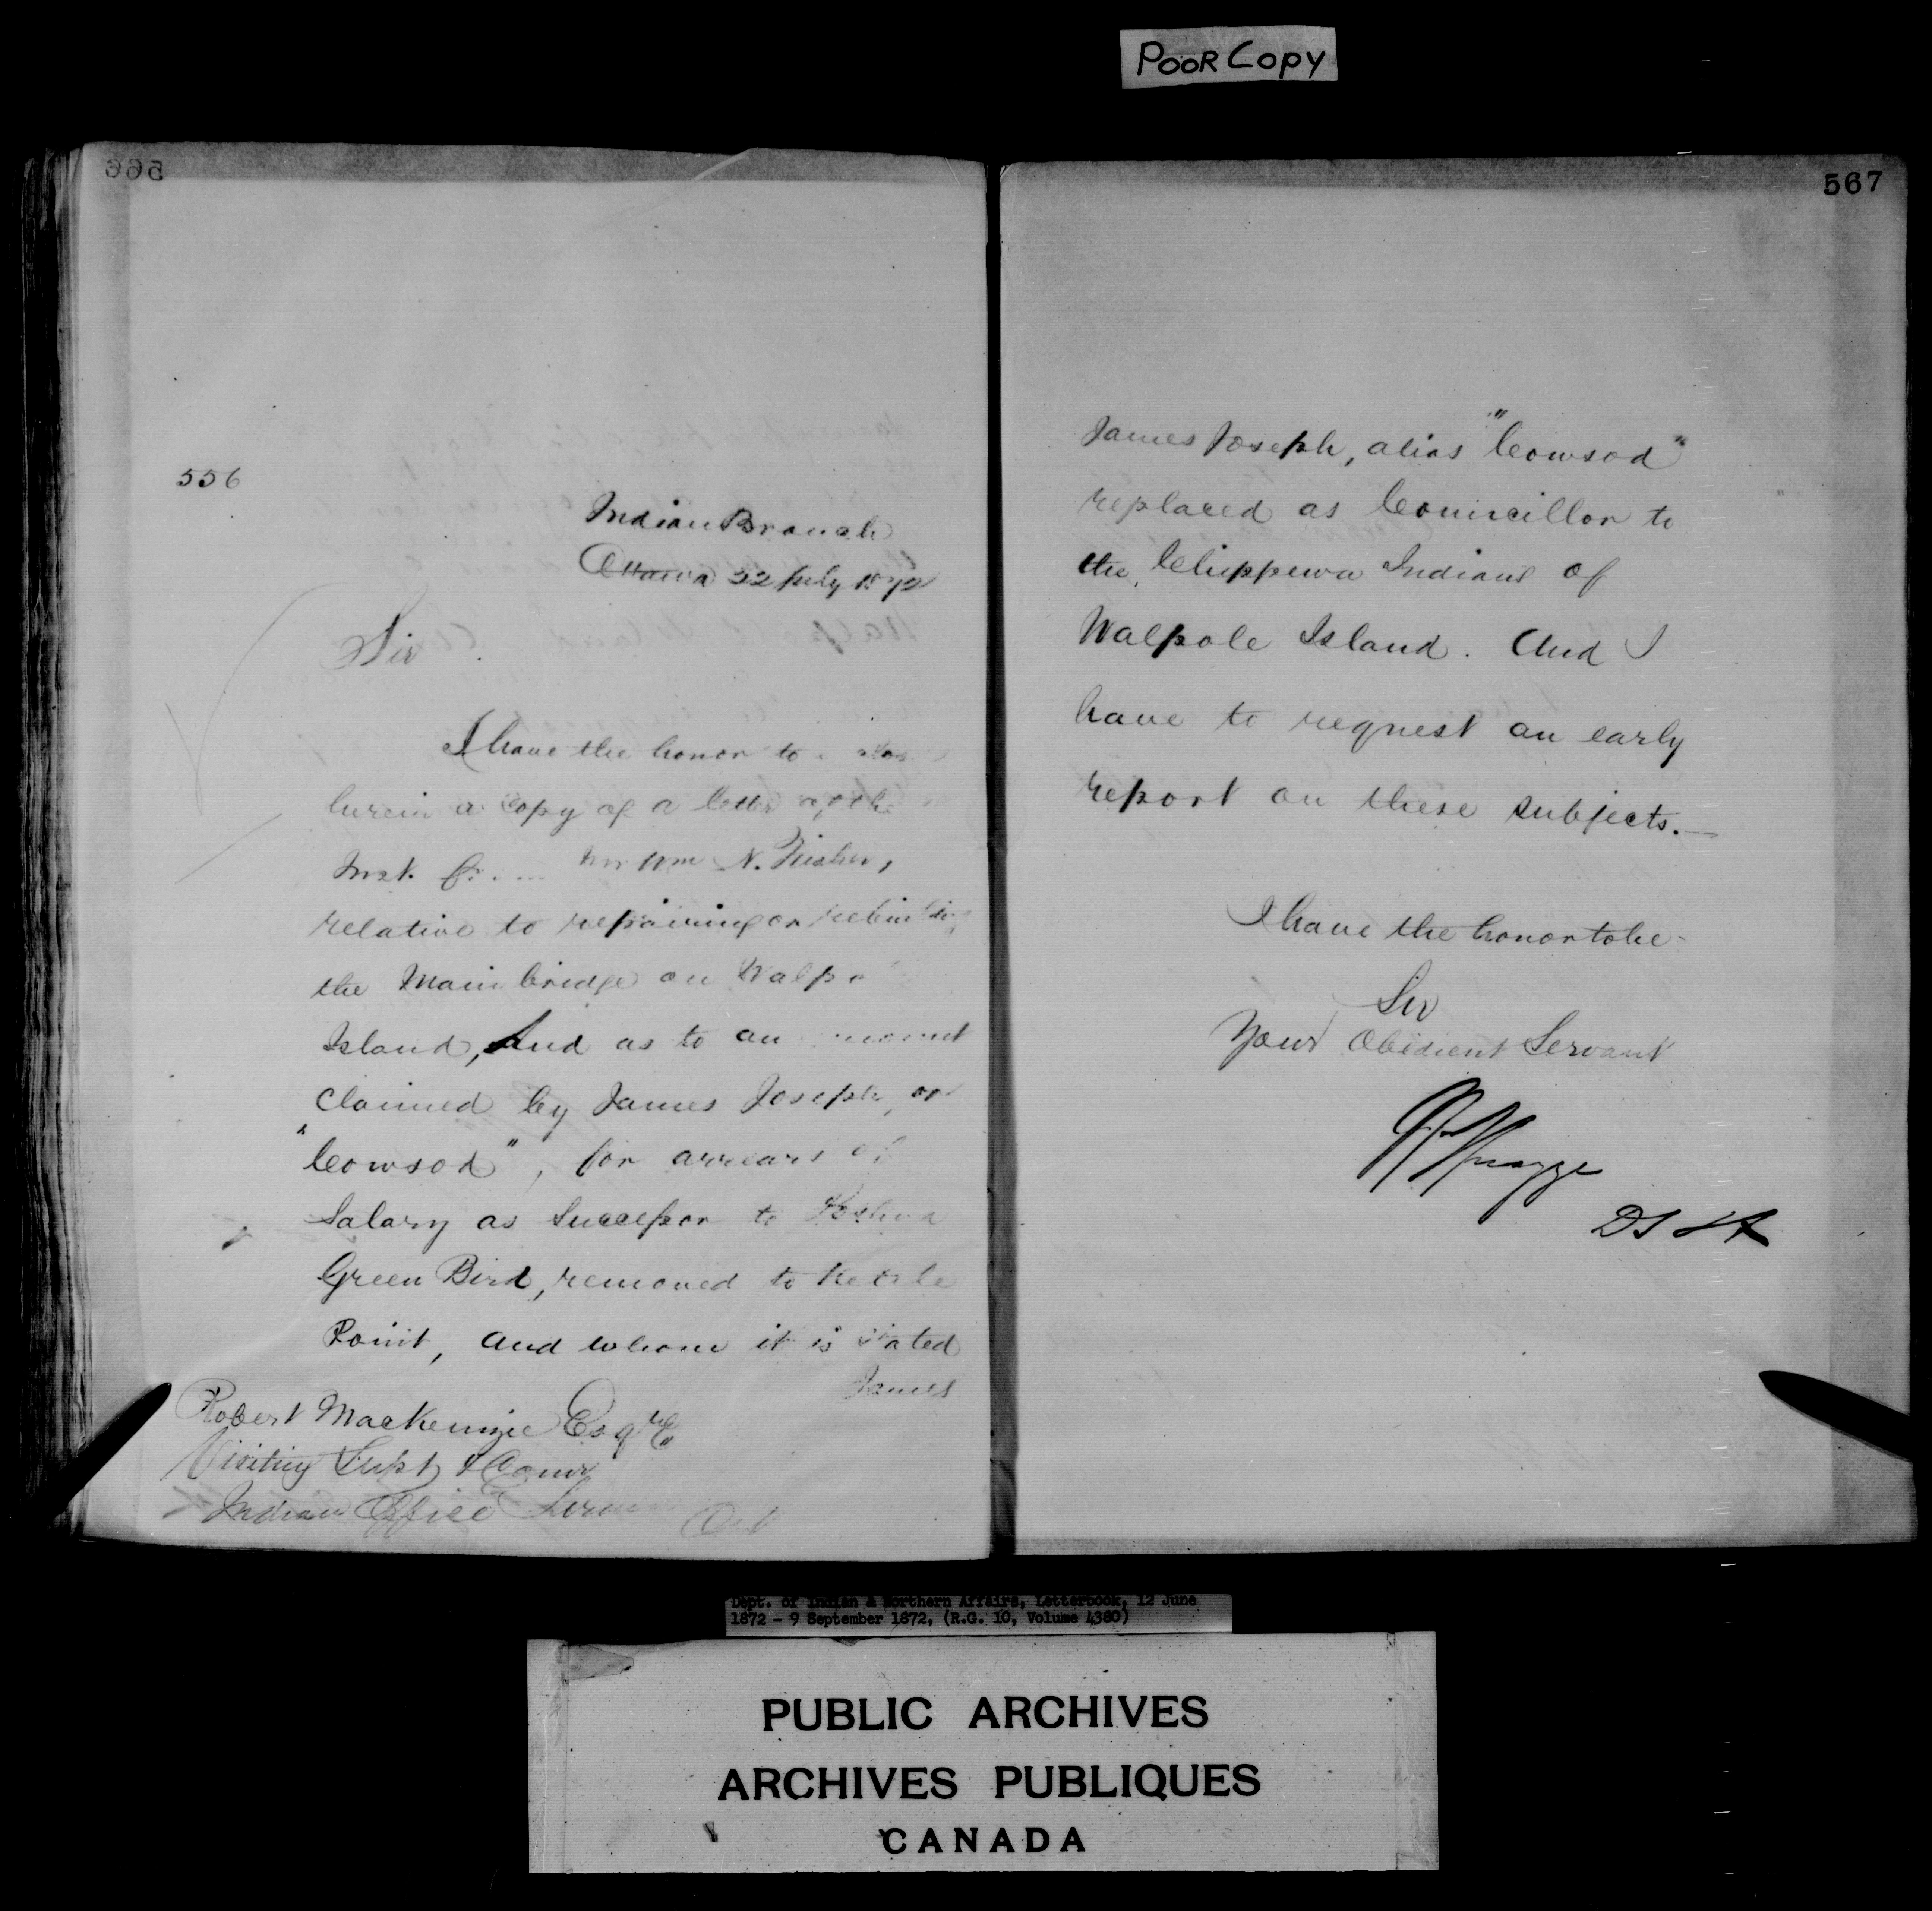 POOR COPY
566
556
Indian Branch
Ottawa 22 July 1872
Sir
I have the honor to
herein a copy of a letter of the
Inst. Mr Wm N. Fisher,
relative to repairing or rebuilding
the Main bridge on Walpo
Island, And as to an amount
claimed by James Joseph, or
"Cowsod", for arrears of
Salary as Successor to Joshua
Green Bird, removed to Kettle
Point, and whom it is stated
James
Robert Mackenzie Esqre
Visiting Supt & Comr
Indian Office
Ont
567
James Joseph, alias "Cowsod"
replaced as Councillor to
the Chippewa Indians of
Walpole Island. And I
have to request an early
report on these subjects.—
I have the honor to be
Sir
Your Obedient Servant
Spragge
DS IA
Dept. of Indian & Northern Affairs, Letterbook, 12 June
1872 - 9 September 1872, (R.G. 10, Volume 4380)
PUBLIC ARCHIVES
ARCHIVES PUBLIQUES
CANADA